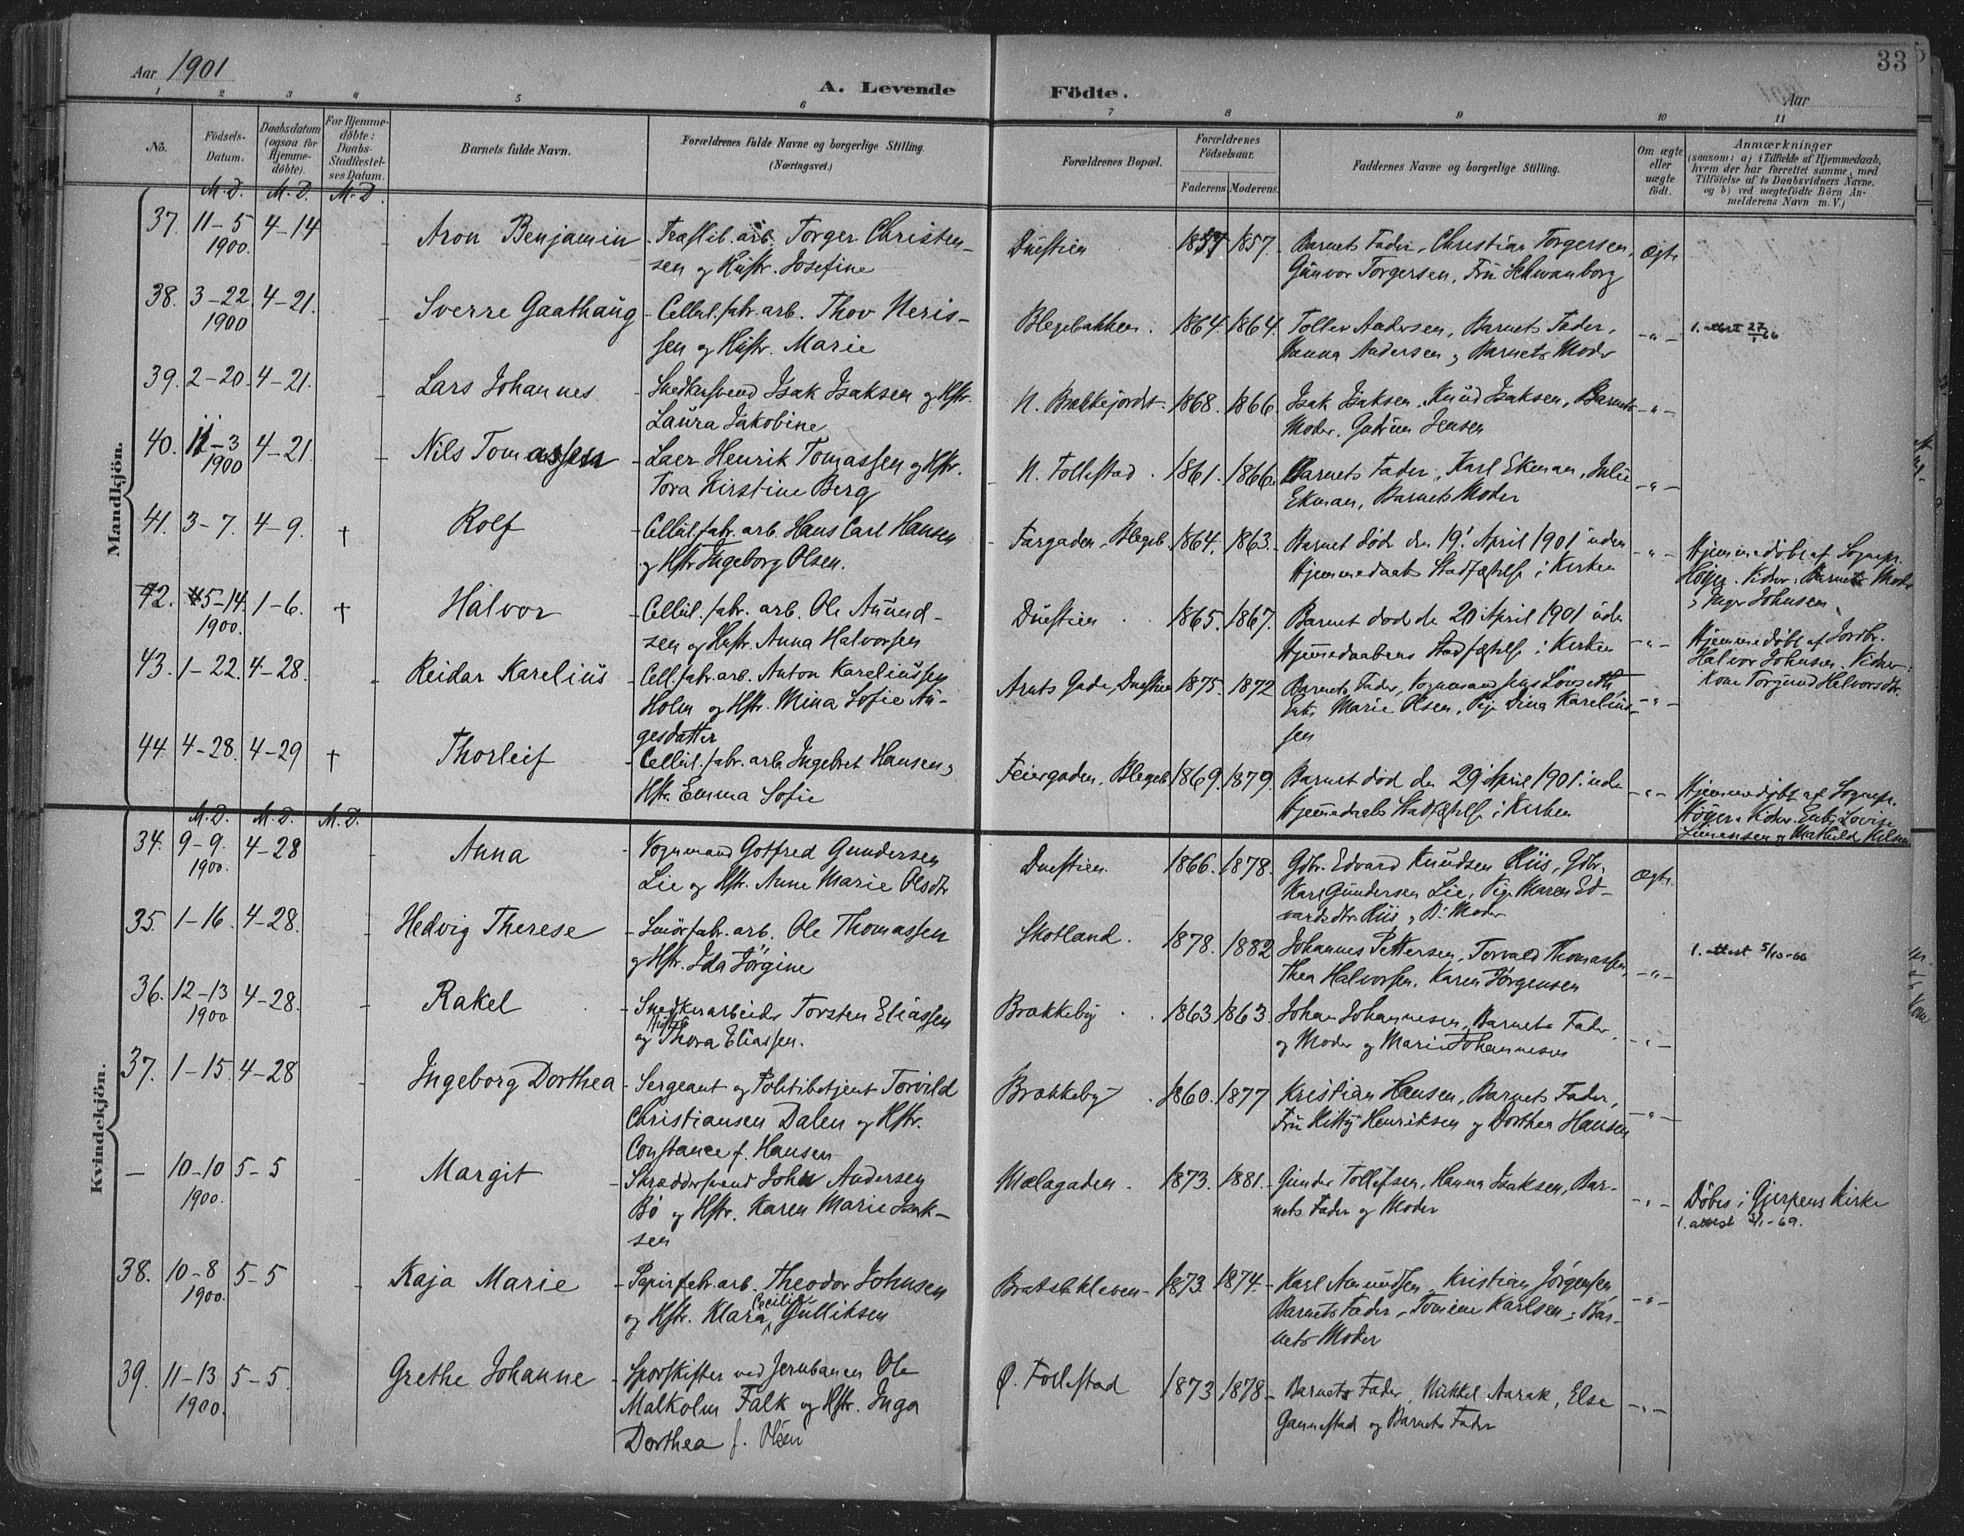 Aar 1901
A. Levende Födte.
Aar
33
1 2 3 4 5 6 7 8 9 10 11
No.
Födsels-Datum.
Daabsdatum (ogsaa for Hjemme-döbte).
For Hjemme-döbte: Daabs-Stadfæstel-ses Datum.
Barnets fulde Navn.
Forældrenes fulde Navne og borgerlige Stilling.
(Næringsvei.)
Forældrenes Bopæl.
Forældrenes Födselsaar.
Faderens. Moderens.
Faddernes Navne og borgerlige Stilling.
Om ægte eller uægte födt.
Anmærkninger
(saasom: a) i Tilfælde af Hjemmedaab,
hvem der har forrettet samme, med
Tilföielse af to Daabsvidners Navne,
og b) ved uægtefödte Börn An-
melderens Navn m. V.)
Mandkjön.
M. D. M. D. M. D.
37. 11-5 1900 4-14 - Aron Benjamin - Træslib. arb. Torger Christen-
sen og Hustr. Josefine
Duestien 1857 1857. Barnets Fader, Christian Torgersen,
Gunvor Torgersen, Fru Schwanborg
Ægte
38. 3-22 1900 4-21. - Sverre Gaathaug - Cellul. fabr. arb. Thov Neris-
sen og Hustr. Marie
Blegebakken. 1864. 1864. Tollev Andersen, Barnets Fader,
Hanna Andersen og Barnets Moder
-"- 1. attest 27/1 66
39. 2-20. 4-21. - Lars Johannes - Snedkersvend Isak Isaksen og Hstr.
Laura Jakobine
N. Brækkejordet 1868. 1866. Isak Isaksen, Knud Isaksen, Barnets
Moder, Gudrun Jensen
-"-
40. 11-3 1900 4-21. - Nils Tomassen - Laer. Henrik Tomassen og Hstr.
Tora Kirstine Berg
N. Follestad. 1861. 1866. Barnets Fader, Karl Ekman, Julie
Ekman, Barnets Moder
-"-
41. 3-7. 4-9. † Rolf - Cellul. fabr. arb. Hans Carl Hansen
og Hstr Ingeborg Olsen.
Fargaden, Blegeb. 1864. 1863. Barnet døde den 19. April 1901 uden
Hjemmedaabs Stadfæstelse i Kirken
-"- Hjemmedøbt af Sognepr.
Høyer. Vidner: Barnets Moder
og Inger Johnsen.
42. 5-14. 1900. 1-6. † Halvor - Cellul. fabr. arb. Ole Amund-
sen og Hustr. Anna Halvorsen
Duestien 1865. 1867. Barnet død den 20 April 1901 uden
Hjemmedaabens Stadfæstelse i Kirken
-"- Hjemmedøbt af Jordbr.
Halvor Johnsen. Vidner:
Kone Torgund Helvorsdtr.
43. 1-22. 4-28. - Reidar Karelius - Cell. fabr. arb. Anton Kareliussen
Holm og Hstr. Mina Sofie Au-
gesdatter
Aruts Gade, Duestien 1875. 1872 Barnets Fader, Vognmand Jens Løvseth,
Enke Marie Olsen, Pige Dina Karelius-
sen
-"-
44. 4-28. 4-29 † Thorleif - Cellul. fabr. arb. Ingebret Hansen og
Hstr. Emma Sofie
Feiergaden. Blegeb. 1869. 1879. Barnet død den 29 April 1901 uden
Hjemmedaabs Stadfæstelse i Kirken
-"- Hjemmedøbt af Sognepr.
Høyer. Vidner. Enke Lovise
Simensen og Mathild Nilsen
Kvindekjön.
M. D. M. D. M. D.
34. 9-9. 1900. 4-28 - Anna - Vognmand Gotfred Gundersen
Lie og Hstr. Anne Marie Olsdtr
Duestien. 1866. 1878. Gdbr. Edvard Knudsen Riis, Gdbr.
Karl Gundersen Lie, Pige Maren Ed-
vardsdtr Riis og B. Moder
Ægte.
35. 1-16. 4-28. - Hedvig Therese - Smörfabr. arb. Ole Thomassen
og Hstr. Ida Jörgine
Skotland. 1878. 1882 Johannes Pettersen, Torvald Thomassen,
Thea Halvorsen, Karen Jørgensen
-"- 1. attest 5/10-66
36. 12-13 1900 4-28. - Rakel - Snedkerarbeider Torsten Eliassen
og Hustru Thora Eliassen.
Brækkeby 1863 1863. Johan Johannesen, Barnets Fader,
og Moder og Marie Johannesen
-"-
37. 1-15. 4-28 - Ingeborg Dorthea - Sergeant og Politibetjent Torvild
Christiansen Dalen og Hstr.
Constance f. Hansen
Brækkeby. 1860. 1877 Kristian Hansen, Barnets Fader,
Fru Kitty Henriksen og Dorthea Hansen
-"-
- 10-10 1900. 5-5 - Margit - Skræddersvend John Andersen
Bö og Hstr. Karen Marie Isak-
sen
Mælagaden. 1873. 1881. Gunder Tollefsen, Hanna Isaksen, Bar-
nets Fader og Moder
-"- Döbes i Gjerpens Kirke
1. attest 3/1-69.
38. 10-8 1900. 5-5 - Kaja Marie - Papirfabr. arb. Theodor Johnsen
og Hstr. Klara Cecilie Gulliksen
Bratsbkleven 1873. 1874. Karl Amundsen, Kristian Jørgensen,
Barnets Fader, Tomine Karlsen, Bar-
nets Moder
-"-
39. 11-13 1900. 5-5. - Grethe Johanne - Sporskifter ved Jernbanen Ole
Malkolm Falk og Hstr. Inga
Dorthea f. Olsen
Ø. Follestad 1873 1878 Barnets Fader, Mikkel Aarak, Else
Gannestad og Barnets Fader
-"-